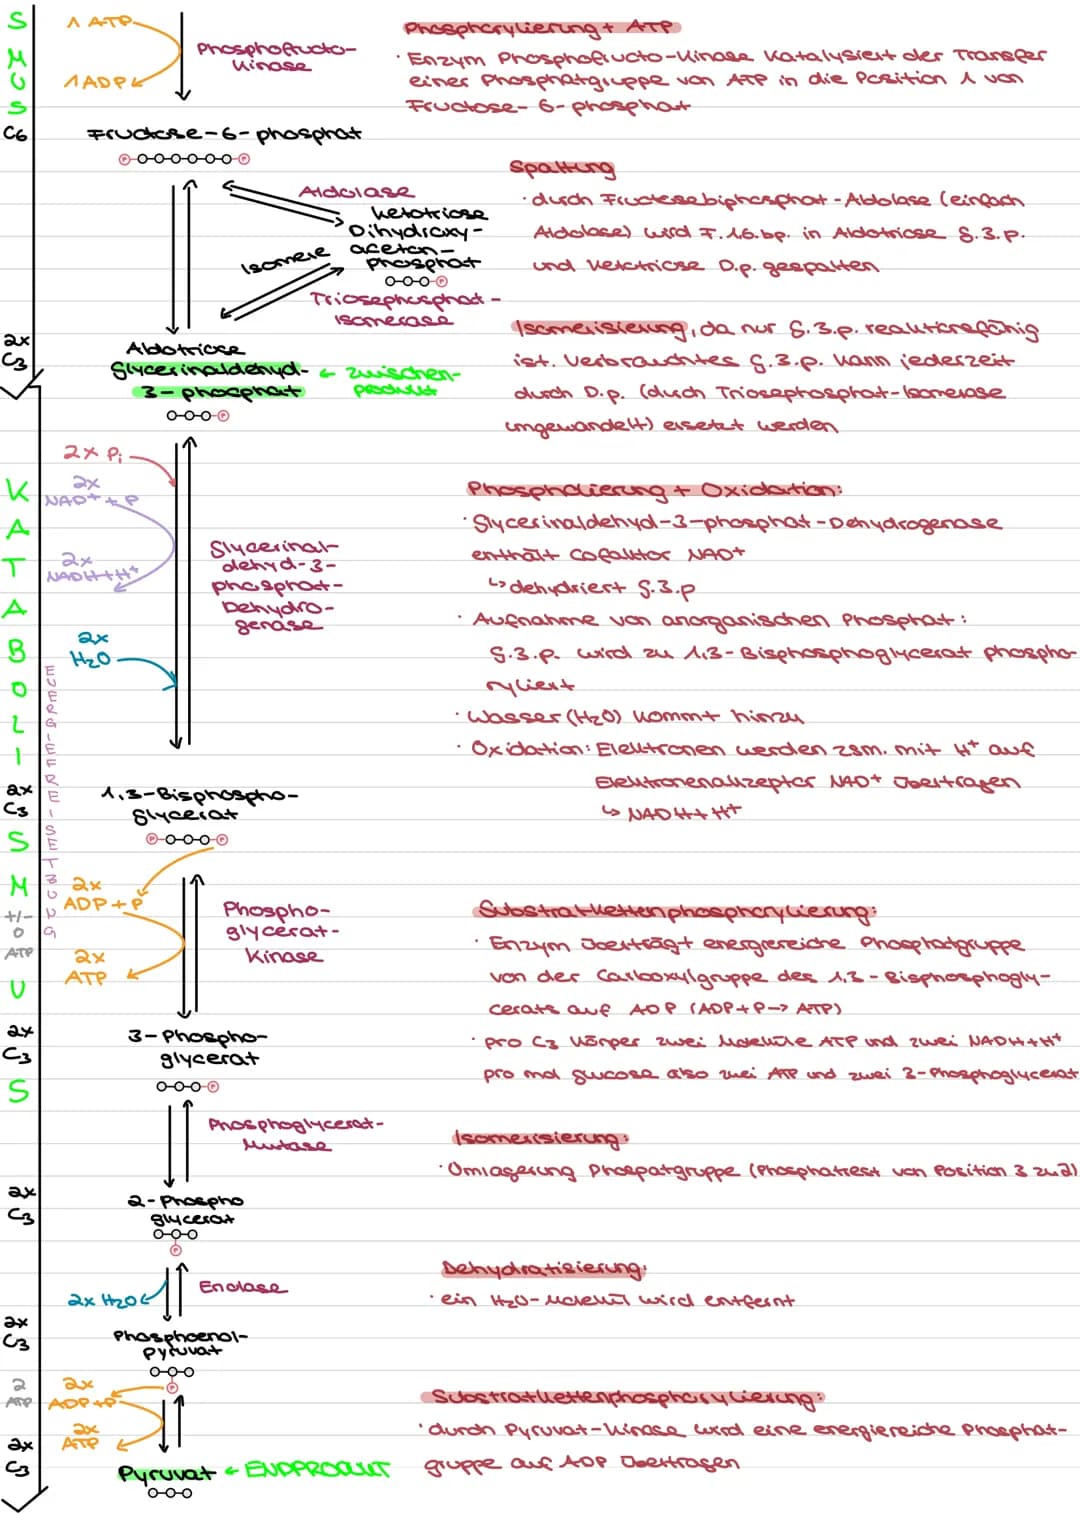 S
M
U
S
C6
1 ATP
1 ADP
Phosphofructo-
kinase
Phosphorylierung + ATP
· Enzym Phosphofructo-Kinase katalysiert der Transfer
einer Phosphatgruppe von ATP in die Position 1 von
Fructose-6-phosphat
Fructose-6-phosphat
P P
Spaltung
· durch Fructosebiphosphat-Aldolase (einfach
Aldolase) wird F.1.6.bp. in Aldotriose G.3.p.
und Ketotriose D.p. gespalten
Aldolase
Ketotriose
Dihydroxy-
aceton-
phosphat
P
Isomere
Triosephosphat-
isomerase
Isomerisierung, da nur G.3.p. reaktionsfähig
ist. Verbrauchtes G.3.p. kann jederzeit
durch D.p. (durch Triosephosphat-Isomerase
umgewandelt) ersetzt werden
2x
C3
Aldotriose
Glycerinaldehyd-
3-phosphat
← Zwischen-
produkt
P
K
A
T
A
B
O
L
I
S
M
U
S
ENERGIEFREISETZUNG
2x Pi
2x
NAD+ + P
2x
NADH+H+
2x
H2O
Glycerinal-
dehyd-3-
phosphat-
Dehydro-
genase
Phospholierung + Oxidation:
· Glycerinaldehyd-3-phosphat-Dehydrogenase
enthält Cofaktor NAD+
↳ dehydriert G.3.p
· Aufnahme von anorganischen Phosphat:
G.3.p. wird zu 1,3-Bisphosphoglycerat phospho-
ryliert
· Wasser (H2O) kommt hinzu
· Oxidation: Elektronen werden zsm. mit H+ auf
Elektronenakzeptor NAD+ übertragen
↳ NADH+H+
2x
C3
1,3-Bisphospho-
glycerat
P P
+/-
0
ATP
2x
ADP+P
2x
ATP
Phospho-
glycerat-
Kinase
Substratkettenphosphorylierung:
· Enzym überträgt energiereiche Phosphatgruppe
von der Carboxylgruppe des 1,3-Bisphosphogly-
cerats auf ADP (ADP+P-> ATP)
· pro C3 Körper zwei Moleküle ATP und zwei NADH+H+
pro mol Glucose also zwei ATP und zwei 3-Phosphoglycerat
2x
C3
3-Phospho-
glycerat
P
Phosphoglycerat-
Mutase
Isomerisierung:
· Umlagerung Phospatgruppe (Phosphatrest von Position 3 zu 2)
2x
C3
2-Phospho
glycerat
P
2x H2O
Enolase
Dehydratisierung:
· ein H2O-Molekül wird entfernt
2x
C3
Phosphoenol-
pyruvat
P
2
ATP
2x
ADP+P
2x
ATP
Substratkettenphosphorylierung:
· durch Pyruvat-Kinase wird eine energiereiche Phosphat-
gruppe auf ADP übertragen
2x
C3
Pyruvat ← ENDPRODUKT